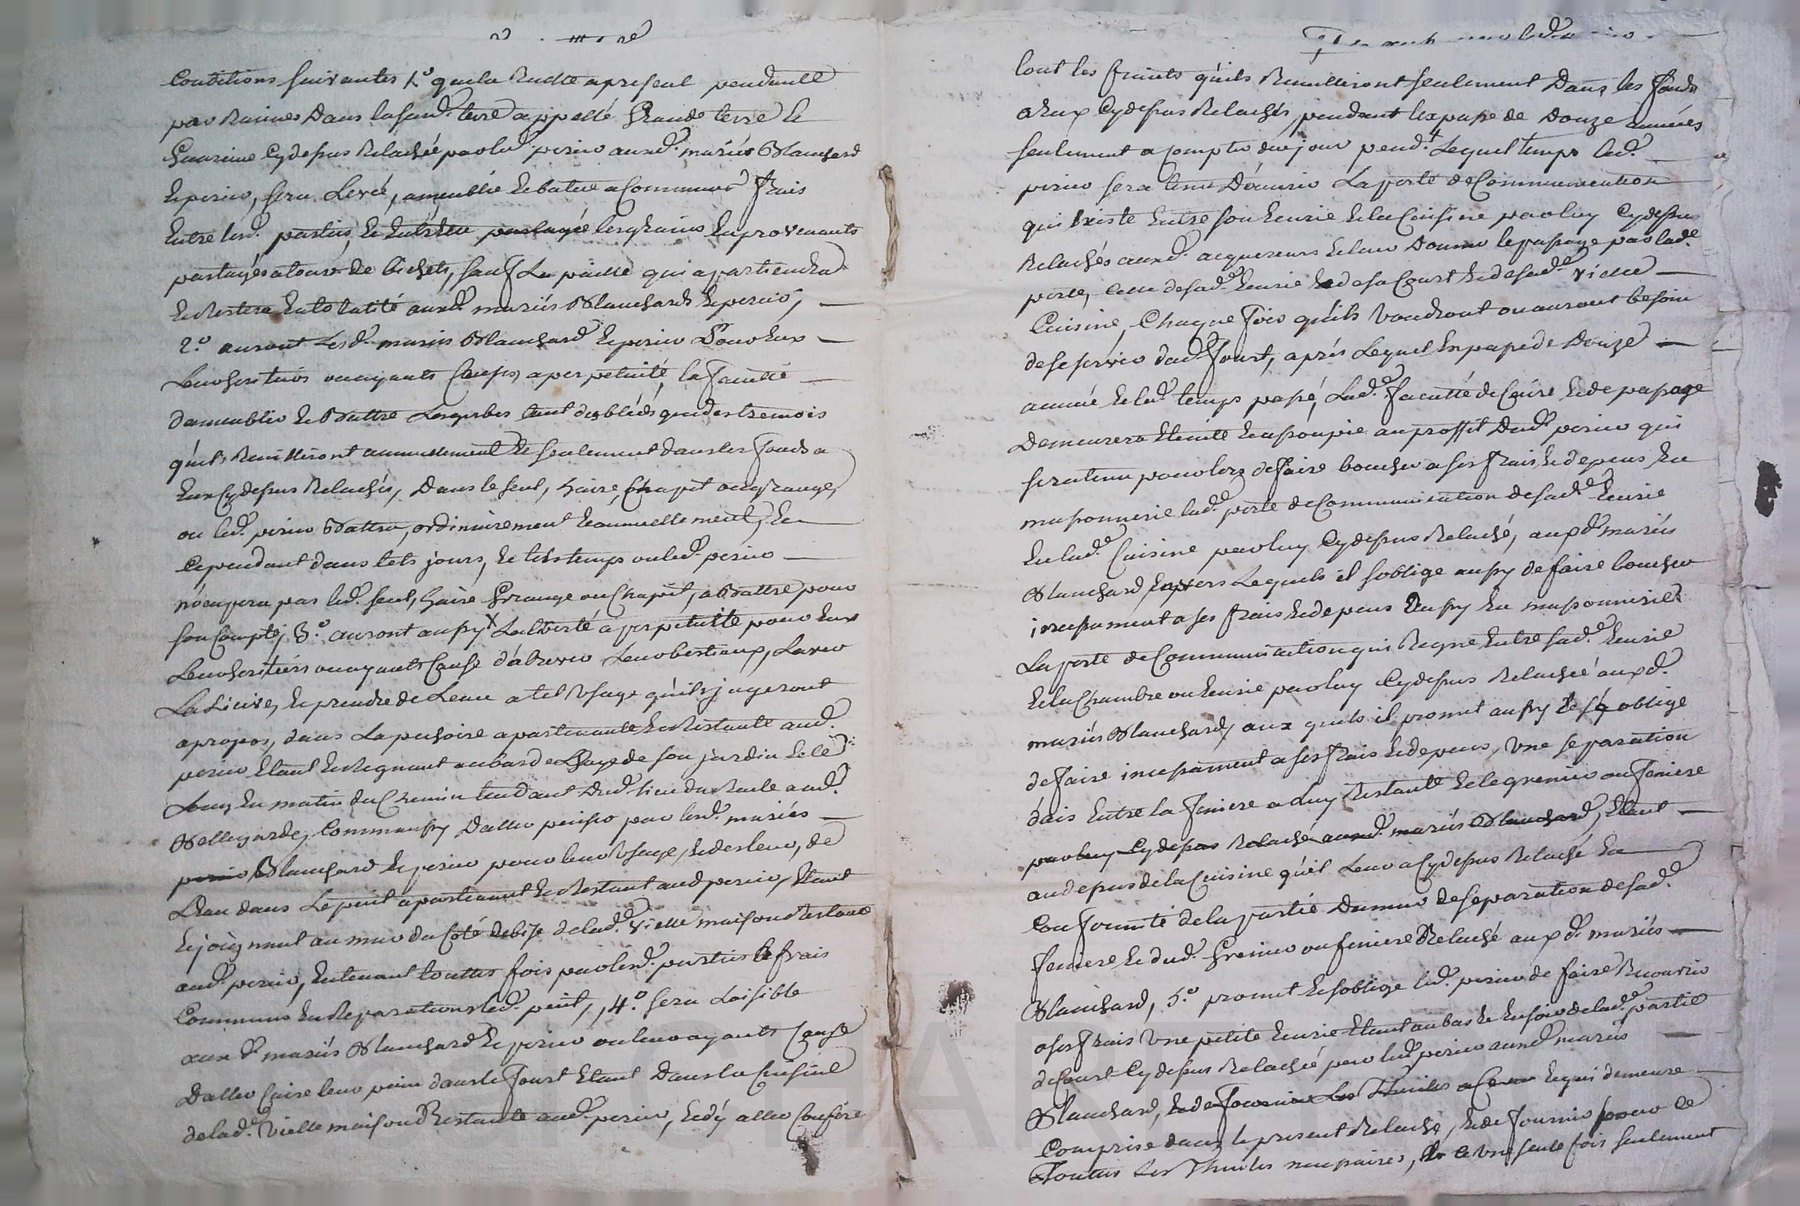 Conditions suivantes 1.º que la Recolte a present pendante
par Racines Dans lasusd.te terre appellé Grande terre le
ey dessus Relachée par led. perier auxd. mariés Blanchard
Et perier, sera Levée, ameublée Et batue a Communs frais
Entre lesd. parties, Et les grains En provenants
partagés a tour de bichets, sauf La paille qui apartiendra
Et Restera En totalité auxd. mariés Blanchard Et perier, —
2.º auront Lesd. mariés Blanchard Et perier Pour Eux —
Leurs heritiers ou ayants Cause, a perpetuité, la faculté —
dameublir Et Battre Les gerbes tant des bleds que des tremois
qu'ils Reuilliront annuellement Et seulement dans les fonds a
Eux Cy dessus Relachés, Dans le seul, haire, Chapit ou grange,
ou led. perier Battra, ordinairement Et annuellement, Et
Cependant dans tels jours, Et tels temps ou led. perier —
n'ocupera pas led. seul, haire Grange ou Chapit, a Battre pour
son Compte, 3.º auront aussy La liberté a perpetuité pour Eux
Leurs heritiers ou ayants Cause d'abrever Leurs bestiaux, Laver
La Lisive, Et prendre de Leau a tel Usage qu'ils jugeront
apropos, dans La apartenante Et Restante aud.
perier Etant Et Regnant au bas de de son jardin Et le
Long Du matin du Chemin tendant Dud. lieu du aud.
Bellegarde, Comme aussy D'aller puiser par lesd. mariés —
Blanchard Et perier pour leur Usage, Et des leurs, de
L'Eau dans Le puit apartenant Et Restant aud. perier, Etant
Et joignant au mur du Coté de bise de lad.e Vielle maison Restante
aud. perier, Entenant touttes fois par lesd. parties les frais
Communs En Reparations led. puit, 4.º sera Loisible
aux d. mariés Blanchard Et perier ou leurs ayants Cause
D'aller Cuire leur pain dans le fourt Etant Dans la Cuisine
de lad.e Vielle maison Restante aud. perier, Et d'y aller
tout les fruits qu'ils Reuilliront seulement Dans les fonds
a Eux Cy dessus Relachés, pendant lexpasse de Douze années
seulement a Compter du jour pend.t Lequel temps led.
perier sera tenu D'ouvrir La porte de Communication
qui Existe Entre son Ecurie Et la Cuisine par luy Cy dessus
Relachés auxd. acquereurs Et leur Donner le passage par lad.e
porte, Celle de sad.e Ecurie Et de sa Court Et de sad.e Vielle —
Cuisine, Chaque fois qu'ils Voudront ou auront besoin
de se servir dud. fourt, aprés Lequel Expasse de Douze —
année Et led. temps passé, Lad.e faculté de Cuire Et de passage
Demeurera Eteinte Et assoupie au proffit Dud. perier qui
sera tenu pour lors de faire boucher a ses frais Et depens En
massonnerie lad.e porte de Communication de sad.e Ecurie
En lad.e Cuisine par luy Cy dessus Relaché, aux d. mariés
Blanchard Envers Lesquels il s'oblige aussy de faire boucher
incessament a ses frais Et depens aussy En massonnerie
La porte de Communication qui Regne Entre sad.e Ecurie
Et la Chambre ou Ecurie par luy Cy dessus Relachée aux d.
mariés Blanchard, aux quels il promet aussy Et s'oblige
de faire incessament a ses frais Et depens, Une separation
d'ais Entre la feniere a luy Restante Et le grenier ou feniere
par luy Cy dessus Relaché auxd. mariés Blanchard, Etant —
au dessus de la Cuisine qu'il Leur a Cy dessus Relaché En
Conformité de la partie Du mur de separation de sad.
feniere Et dud. Grenier ou feniere Relaché aux d. mariés —
Blanchard, 5.º promet Et s'oblige led. perier de faire Recouvrir
a ses frais Une petite Ecurie Etant au bas Et En soir de lad.e partie
de Court Cy dessus Relachée par led. perier auxd. mariés —
Blanchard, Et de Les Thuiles a Et qui demeure —
Comprise dans le present Relache, Et de fournir pour Ce
Touttes Les Thuiles necessaires, Et Ce Une seule fois seulement